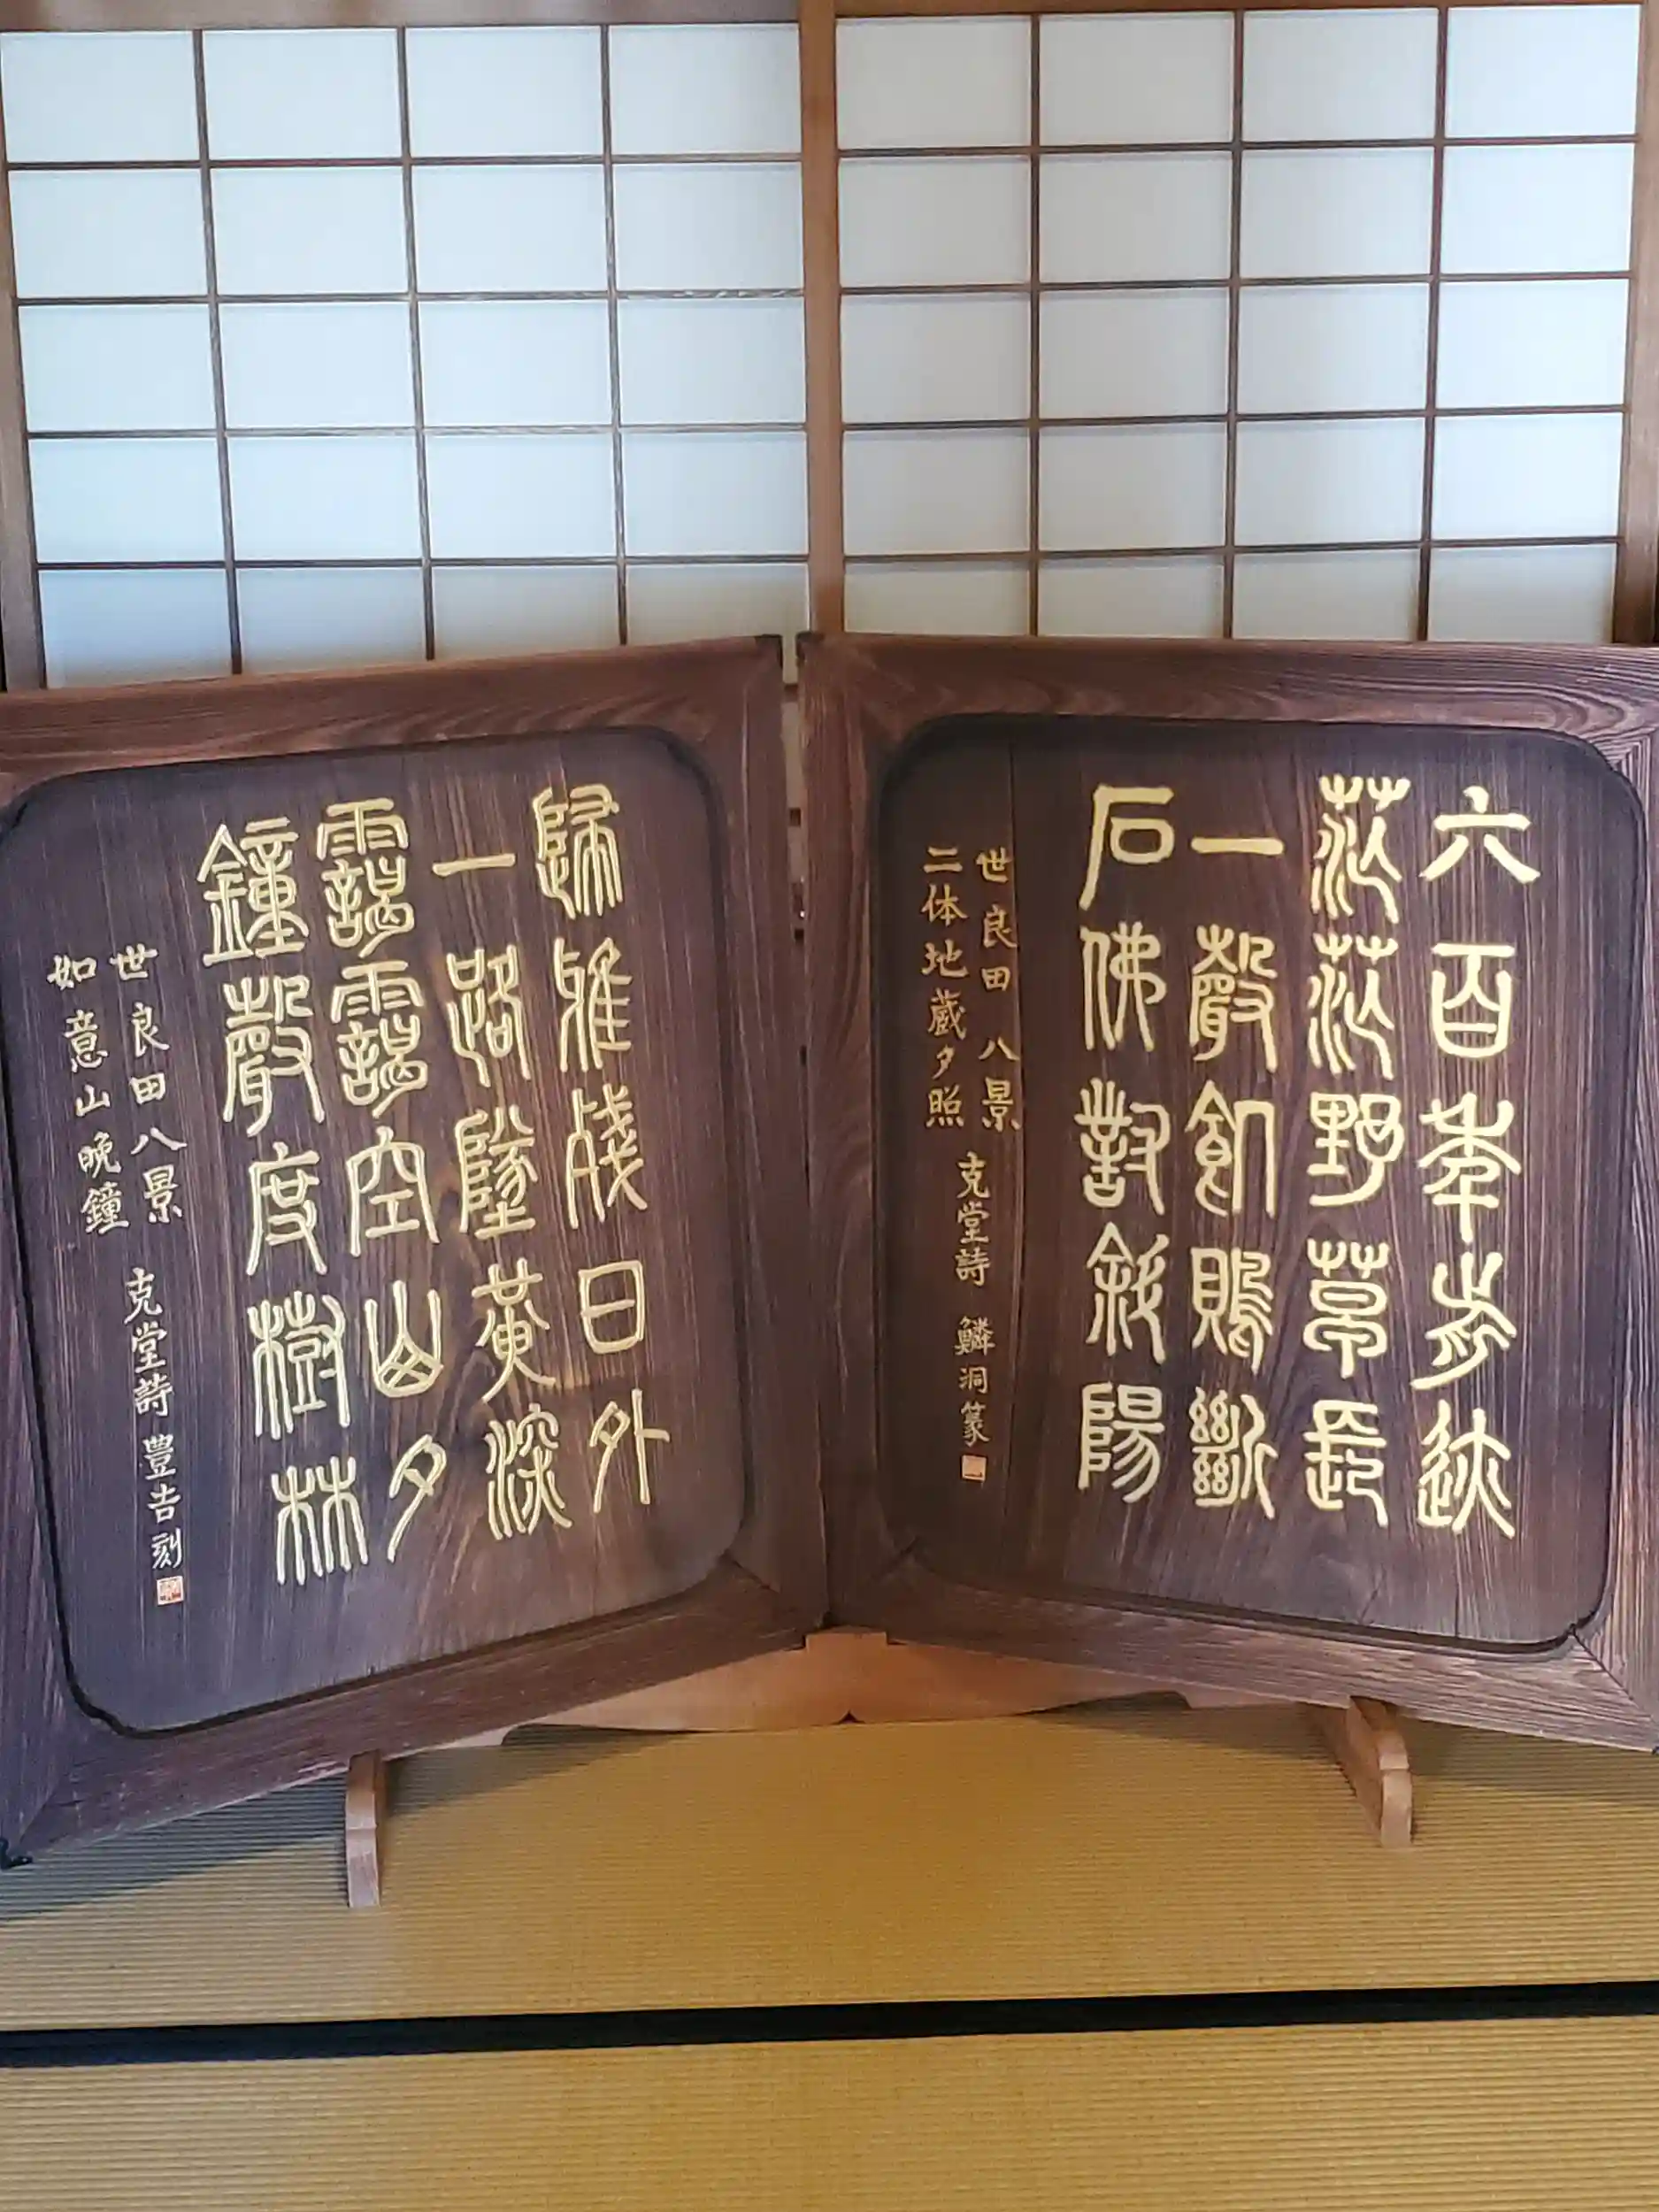 六百年前迹
茫茫野草長
一聲飢斷
石佛對斜陽
世良田八景
二体地蔵夕照
克堂詩 鱗洞篆
歸雅殘日外
一路墜黄深
靄靄空山夕
鐘聲度樹林
世良田八景
如意山晩鐘
克堂詩 豊吉刻